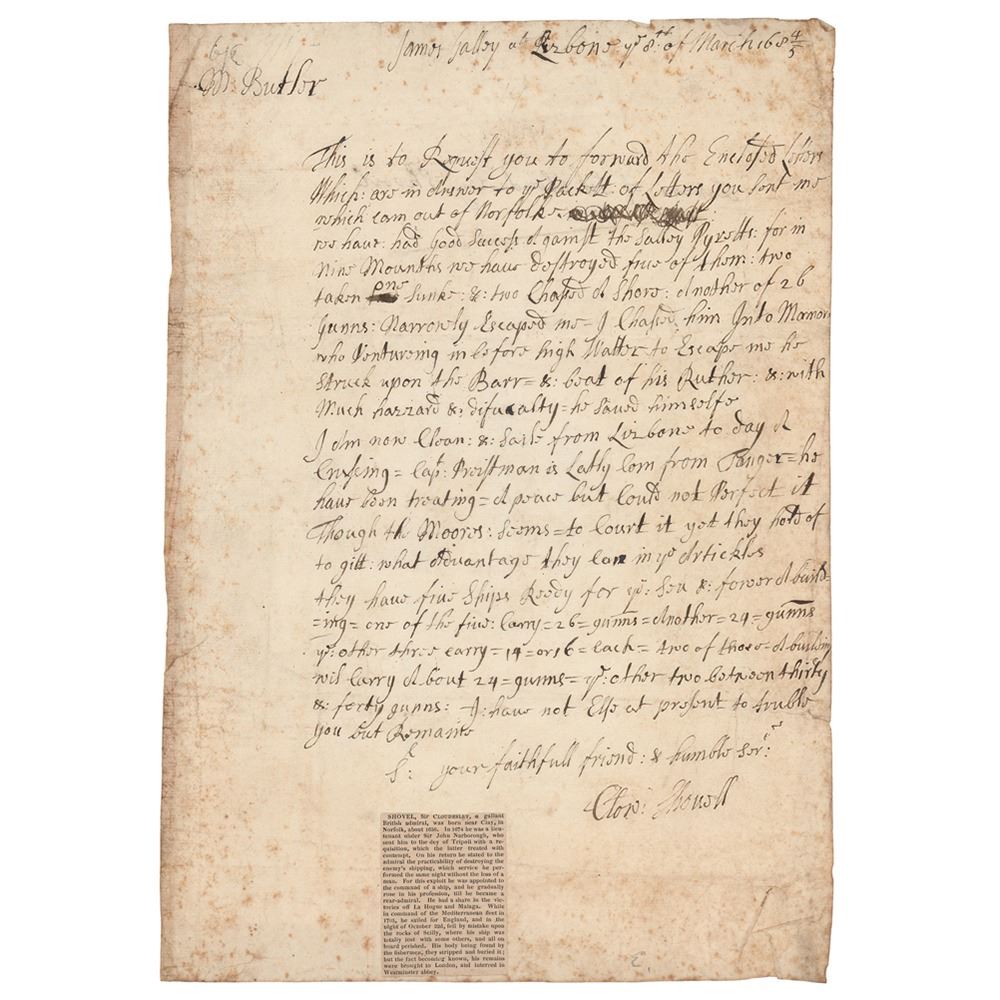 James Galley at Lizbone yᵉ 8:th of March 168 4/5
Mr: Butler
This is to Request you to forward the Enclosed Letters
Which: are in Answer to yᵉ Packett of Letters you sent me
which cam out of Norfolk=
we have: had Good Success Against the Salley Pyretts: for in
Nine Mounths we have destroyed five of them: two
taken one Sunke: &: two Chased A Shore: Another of 26
Gunns: Narrowly Escaped me= I Chased him Into Mamor
who Ventureing in before high Watter to Escape me he
Struck upon the Barr= &: beat of his Ruther: &: with
Much hazzard &: difucalty= he saved himselfe
I Am now Clean: &: Saile from Lizbone to day A
Crusing= Capt: Preistman is Latly Com from Tanger= he
have been treating= A peace but Could not Perfect it
Though the Moores: Seems= to Court it yet they hold of
to gitt: what Advantage they Can in yᵉ Artickles
they have five Ships Reedy for yᵉ: Sea &: fower A build=
=ing= one of the five: Carry= 26= gunns= Another= 24= gunns
yᵉ: other three Carry= 14= or 16= Each= two of those= A building
will Carry A bout 24= gunns= yᵉ: other two between thirty
&: forty gunns: I: have not Else at present to truble
you but Remaine
Sr: your faithfull friend: & humble Serr:
Clowd: Shovell
SHOVEL, SIR CLOUDESLEY, a gallant
British admiral, was born near Clay, in
Norfolk, about 1650. In 1674 he was a lieu-
tenant under Sir John Narborough, who
sent him to the dey of Tripoli with a re-
quisition, which the latter treated with
contempt. On his return he stated to the
admiral the practicability of destroying the
enemy's shipping, which service he per-
formed the same night without the loss of a
man. For this exploit he was appointed to
the command of a ship, and he gradually
rose in his profession, till he became a
rear-admiral. He had a share in the vic-
tories off La Hogue and Malaga. While
in command of the Mediterranean fleet in
1705, he sailed for England, and in the
night of October 22d, fell by mistake upon
the rocks of Scilly, where his ship was
totally lost with some others, and all on
board perished. His body being found by
the fishermen, they stripped and buried it;
but the fact becoming known, his remains
were brought to London, and interred in
Westminster abbey.